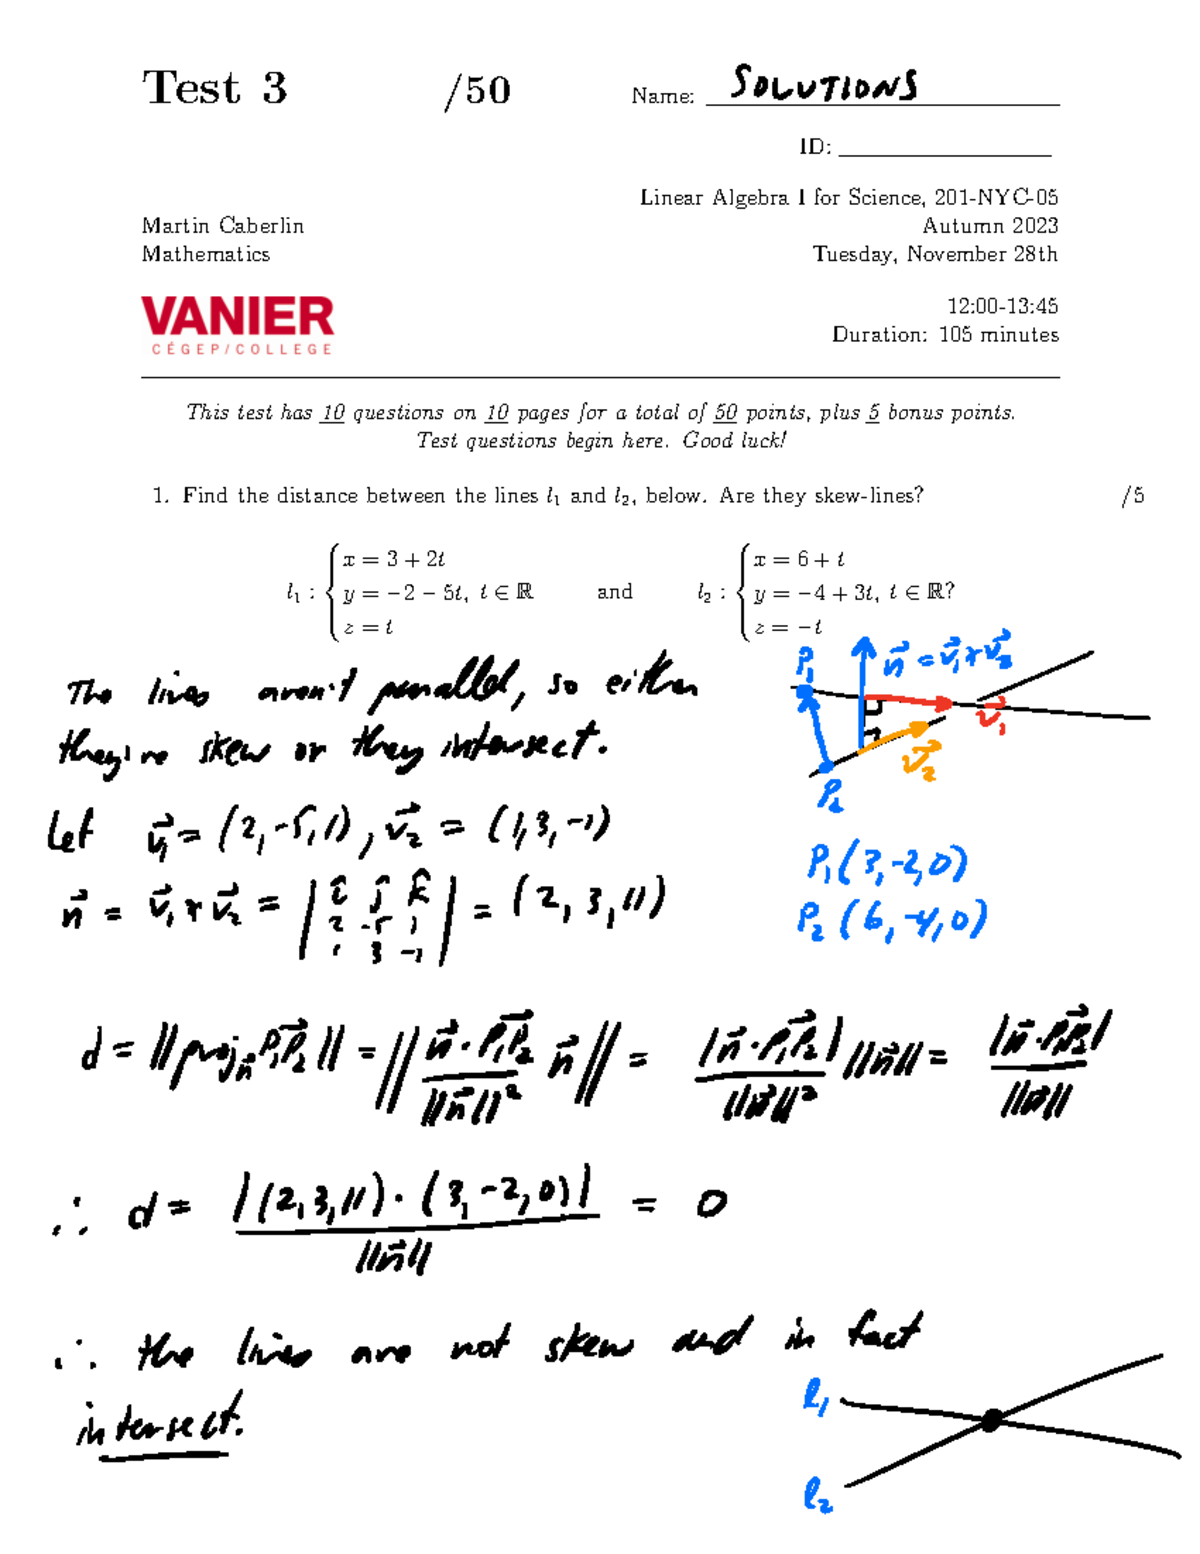 Test 3 /50 Name: SOLUTIONS
ID:
Linear Algebra I for Science, 201-NYC-05
Martin Caberlin Autumn 2023
Mathematics Tuesday, November 28th
VANIER 12:00-13:45
CÉGEP/COLLEGE Duration: 105 minutes
This test has 10 questions on 10 pages for a total of 50 points, plus 5 bonus points.
Test questions begin here. Good luck!
1. Find the distance between the lines l₁ and l₂, below. Are they skew-lines? /5
l₁ : { x = 3 + 2t
y = −2 − 5t, t ∈ ℝ
z = t
and
l₂ : { x = 6 + t
y = −4 + 3t, t ∈ ℝ?
z = −t
P₁ n⃗ = v⃗₁ × v⃗₂
v⃗₁
v⃗₂
P₂
The lines aren't parallel, so either
they're skew or they intersect.
Let v⃗₁ = (2, -5, 1), v⃗₂ = (1, 3, -1)
P₁(3, -2, 0)
P₂(6, -4, 0)
n⃗ = v⃗₁ × v⃗₂ = | î ĵ k̂ | = (2, 3, 11)
2 -5 1
1 3 -1
d = ||proj_n⃗ P₁P₂|| = || n⃗ · P₁P₂ / ||n⃗||² n⃗ || = |n⃗ · P₁P₂| / ||n⃗||² ||n⃗|| = |n⃗ · P₁P₂| / ||n⃗||
∴ d = |(2, 3, 11) · (3, -2, 0)| / ||n⃗|| = 0
∴ the lines are not skew and in fact
intersect.
l₁
l₂